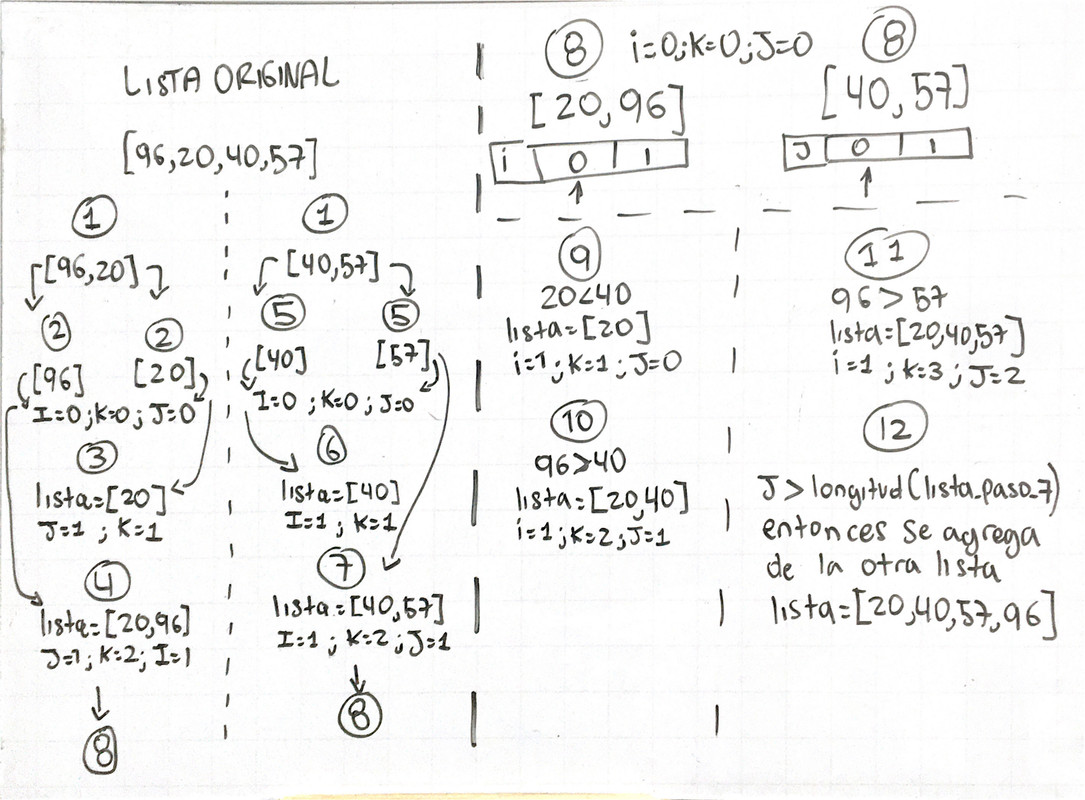 LISTA ORIGINAL
[96,20,40,57]
1
[96,20]
2 2
[96] [20]
I=0;K=0;J=0
3
lista=[20]
J=1 ; K=1
4
lista=[20,96]
J=1; K=2; I=1
8
1
[40,57]
5 5
[40] [57]
I=0 ; K=0; J=0
6
lista=[40]
I=1 ; K=1
7
lista=[40,57]
I=1 ; K=2; J=1
8
8 i=0;K=0;J=0 8
[20,96] [40,57]
i 0 1 J 0 1
9
20<40
lista=[20]
i=1;K=1;J=0
10
96>40
lista=[20,40]
i=1;K=2;J=1
11
96>57
lista=[20,40,57]
i=1 ; K=3; J=2
12
J>longitud(lista_paso_7)
entonces se agrega
de la otra lista
lista=[20,40,57,96]